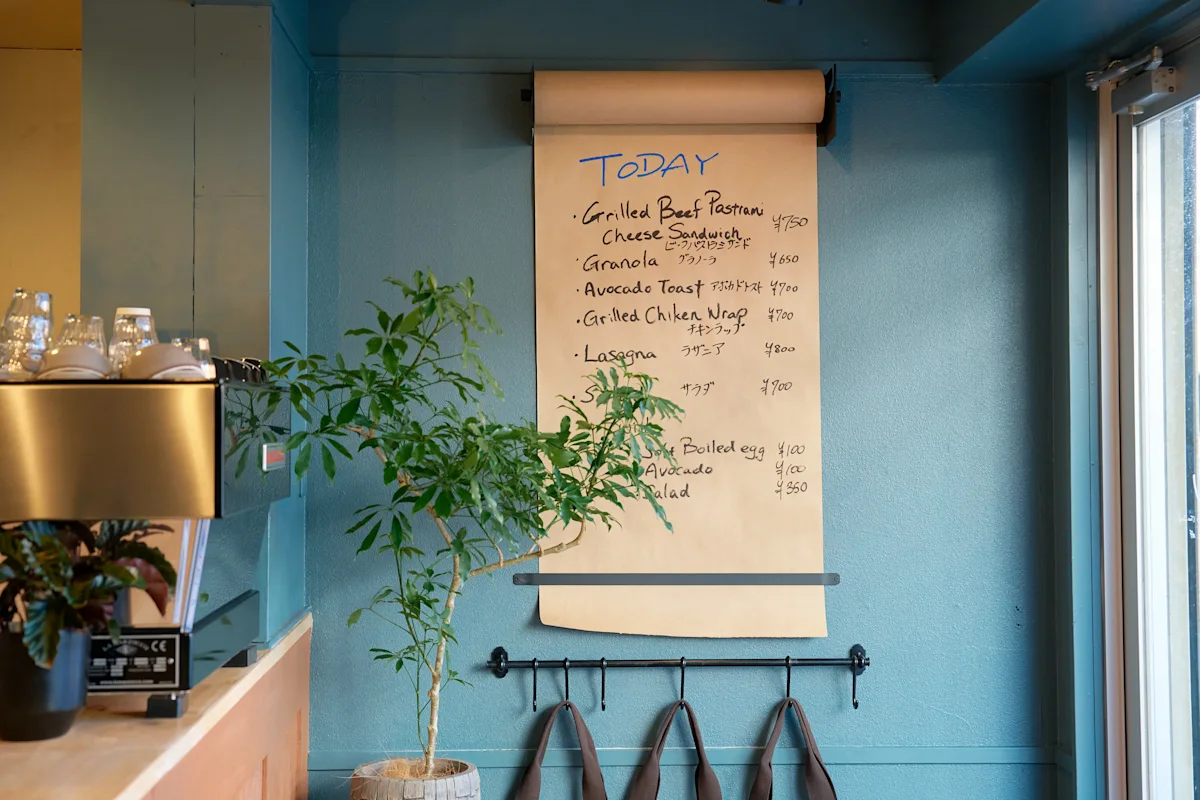 TODAY
· Grilled Beef Pastrami ¥750
Cheese Sandwich
ビーフパストラミサンド
· Granola グラノーラ ¥650
· Avocado Toast アボカドトースト ¥700
· Grilled Chiken Wrap ¥700
チキンラップ
· Lasagna ラザニア ¥800
· S サラダ ¥700
Boiled egg ¥100
Avocado ¥100
alad ¥350
CE